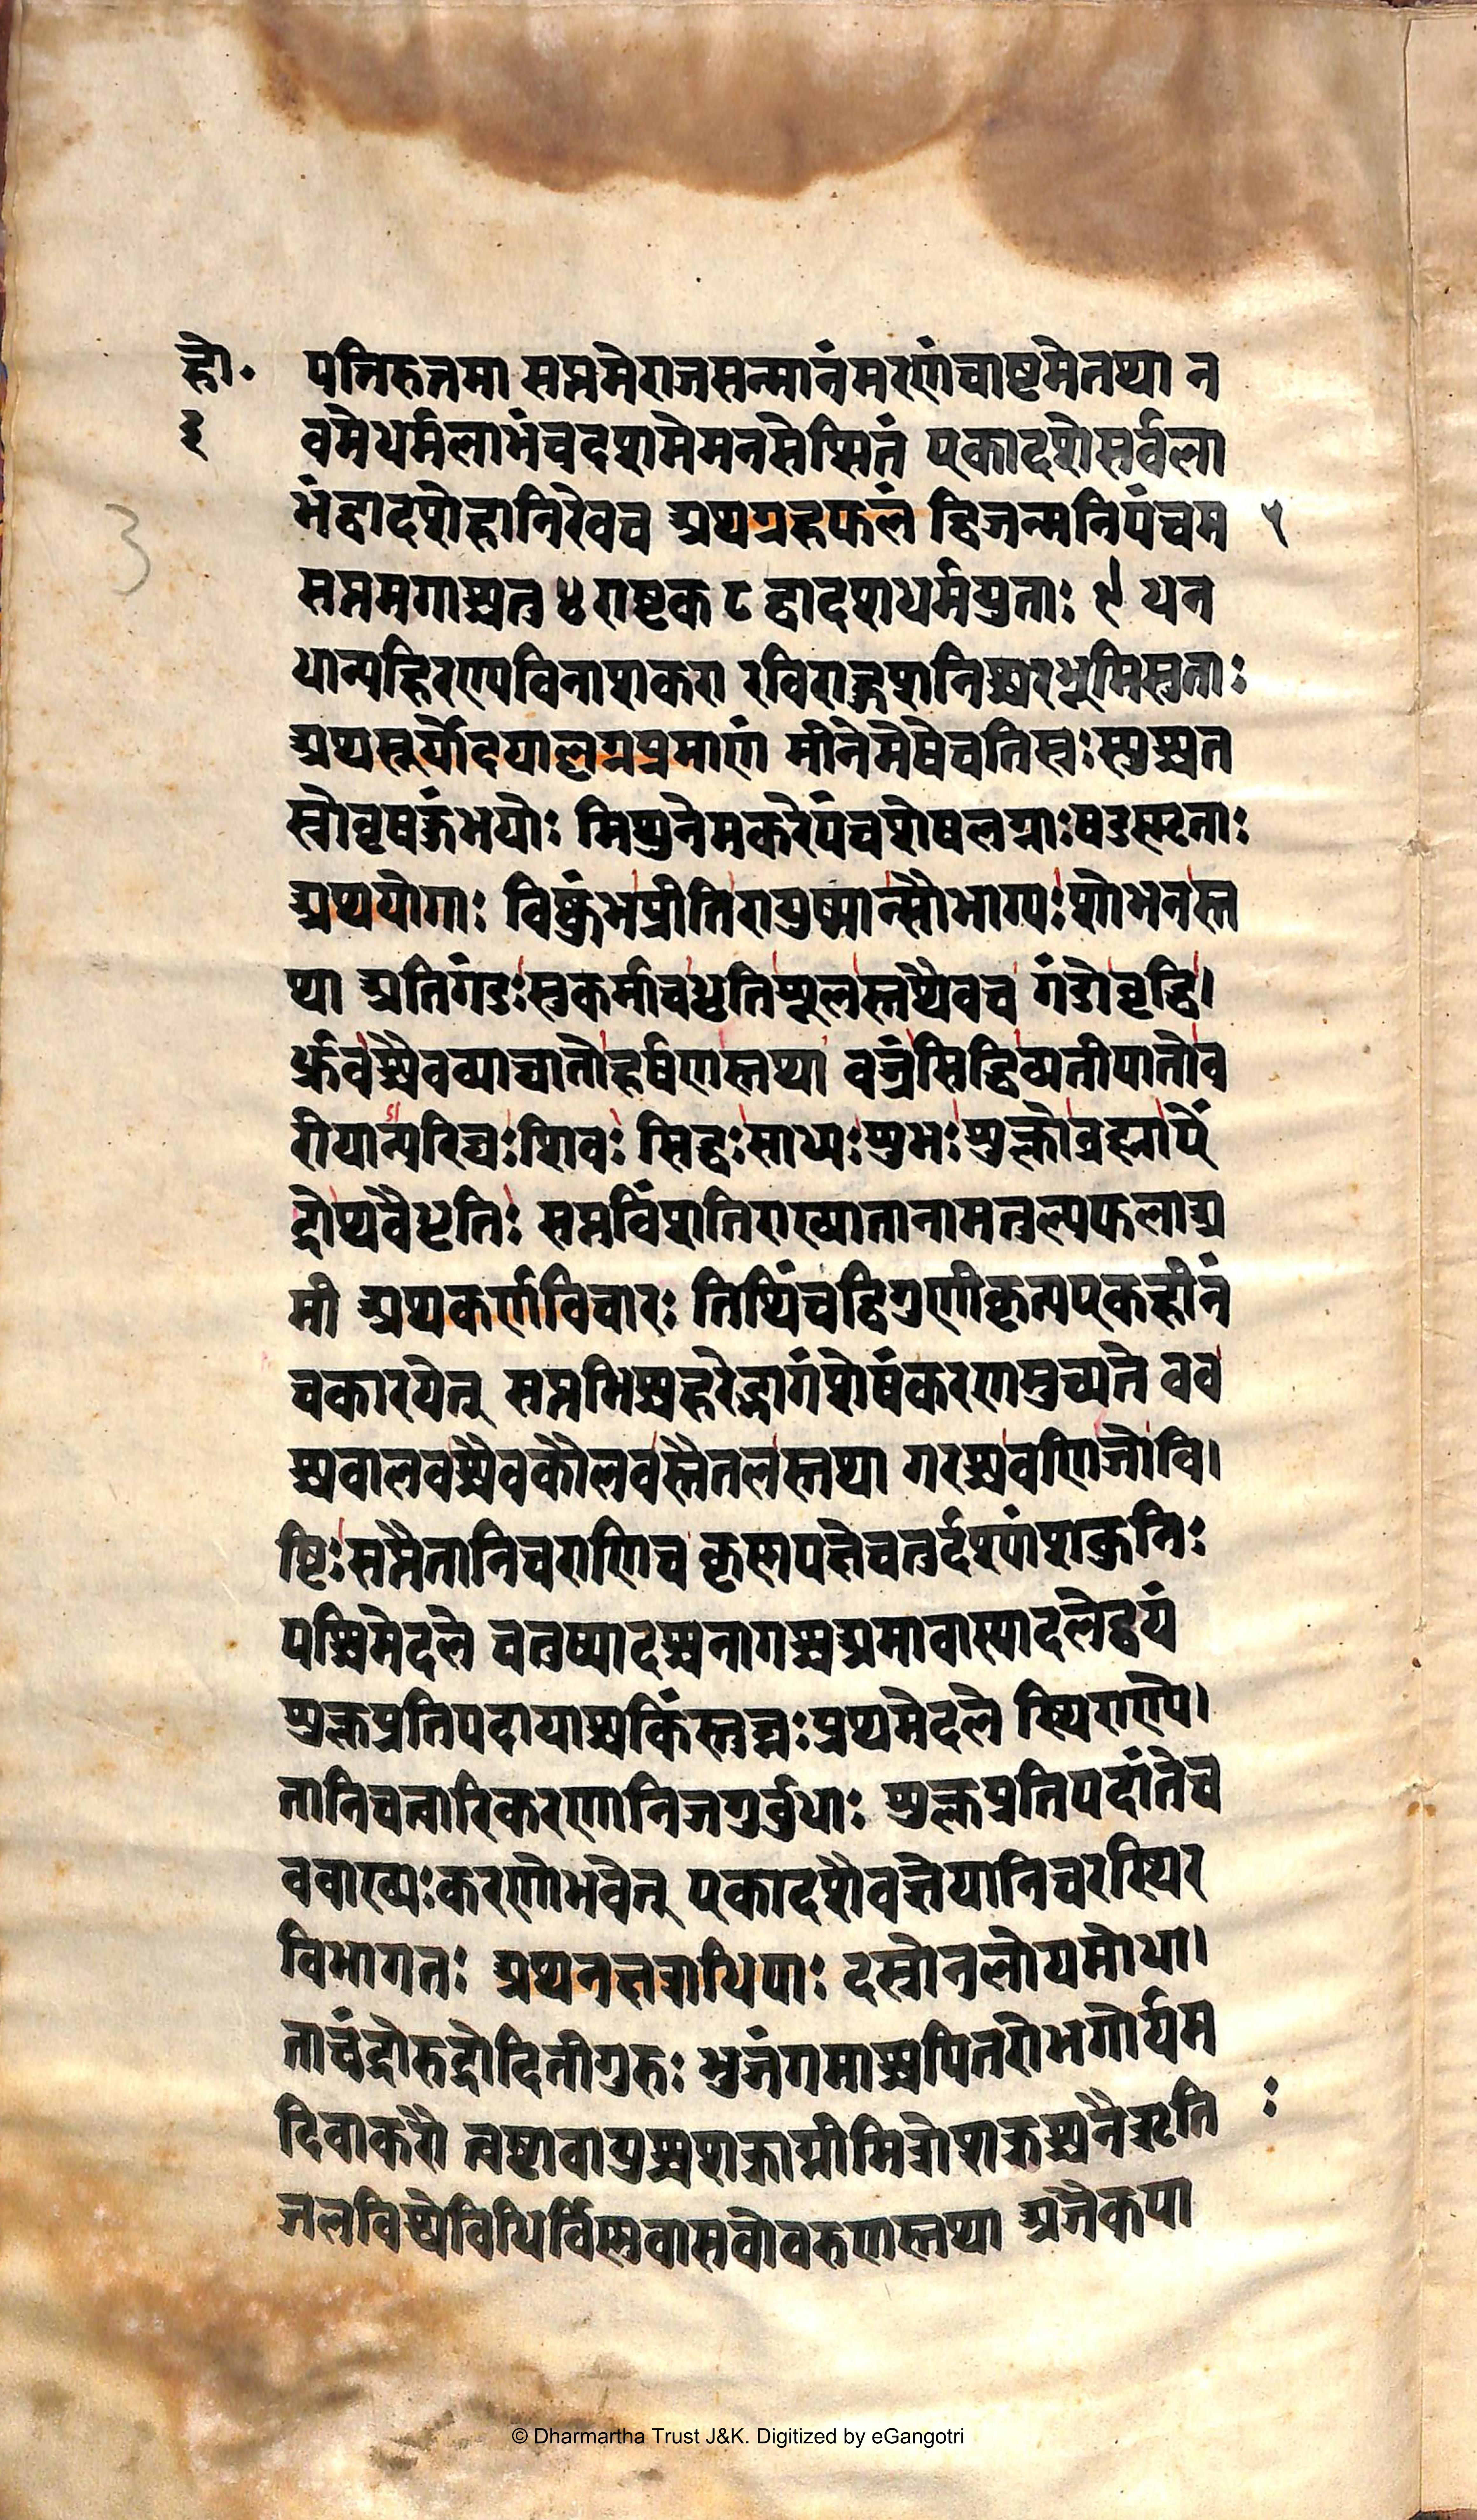 हो॰
३
3
पत्तिरुत्तमा सप्तमेराजसन्मानंमरणंचाष्टमेतथा न
वमेधर्मलाभंचदशमेमनसेप्सितं एकादशेसर्वला
भंद्वादशेहानिरेवच अथग्रहफलं द्विजन्मनिपंचम ५
सप्तमगाश्चतु ४ राष्टक ८ द्वादशधर्मयुताः ९ धन
धान्यहिरण्यविनाशकरा रविराहुशनिश्चरभूमिसुताः
अथसूर्योदयाल्लग्नप्रमाणं मीनेमेषेचतिस्रःस्युश्चत
स्रोवृषकुंभयोः मिथुनेमकरेपंचशेषलग्नाःषडस्मृताः
अथयोगाः विष्कुंभप्रीतिरायुष्मान्सौभाग्यःशोभनस्त
था अतिगंडःसुकर्माचधृतिशूलस्तथैवच गंडोवृद्धि।
र्ध्रुवश्चैवव्याघातोहर्षणस्तथा वज्रंसिद्धिव्यतीपातोव
रीयान्परिघःशिवः सिद्धःसाध्यःशुभःशुक्लोब्रह्माऐं
द्रोथवैधृतिः सप्तविंशतिराख्यातानामतुल्यफलाअ
मी अथकर्णविचारः तिथिंचद्विगुणीकृत्यएकहीनं
चकारयेत् सप्तभिश्चहरेद्भागंशेषंकरणमुच्यते वव
श्चवालवश्चैवकौलवस्तैतलस्तथा गरश्चवणिजोवि।
ष्टिःसप्तैतानिचराणिच कृष्णपक्षेचतुर्दश्यांशकुनिः
पश्चिमेदले चतुष्पादश्चनागश्चअमावास्यादलेद्वयं
शुक्लप्रतिपदायाश्चकिंस्तुघ्नःप्रथमेदले स्थिराण्ये।
तानिचत्वारिकरणानिजगुर्वुधाः शुक्लप्रतिपदांतेच
ववाख्यःकरणोभवेत् एकादशैवज्ञेयानिचरस्थिर
विभागतः अथनक्षत्राधिपाः दस्रोनलोयमोधा।
ताचंद्रोरुद्रोदितीगुरुः भुजंगमाश्चपितरोभगोर्यम
दिवाकरौ त्वष्टावायुश्चशक्राग्नीमित्रोशक्रश्चनैरृति :
जलविश्वेविधिर्विस्नवासवोवरुणस्तथा अजैकपा
© Dharmartha Trust J&K. Digitized by eGangotri